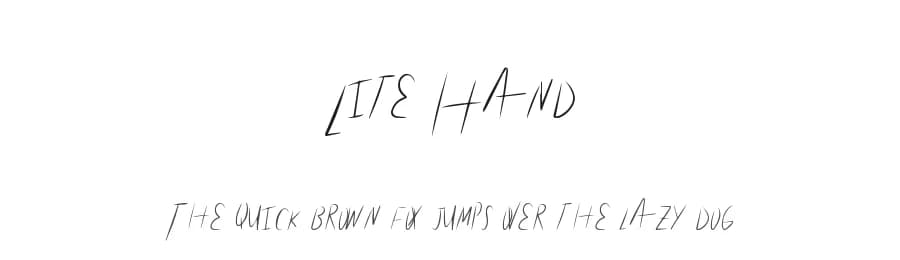 LITE HAND
THE QUICK BROWN FOX JUMPS OVER THE LAZY DOG